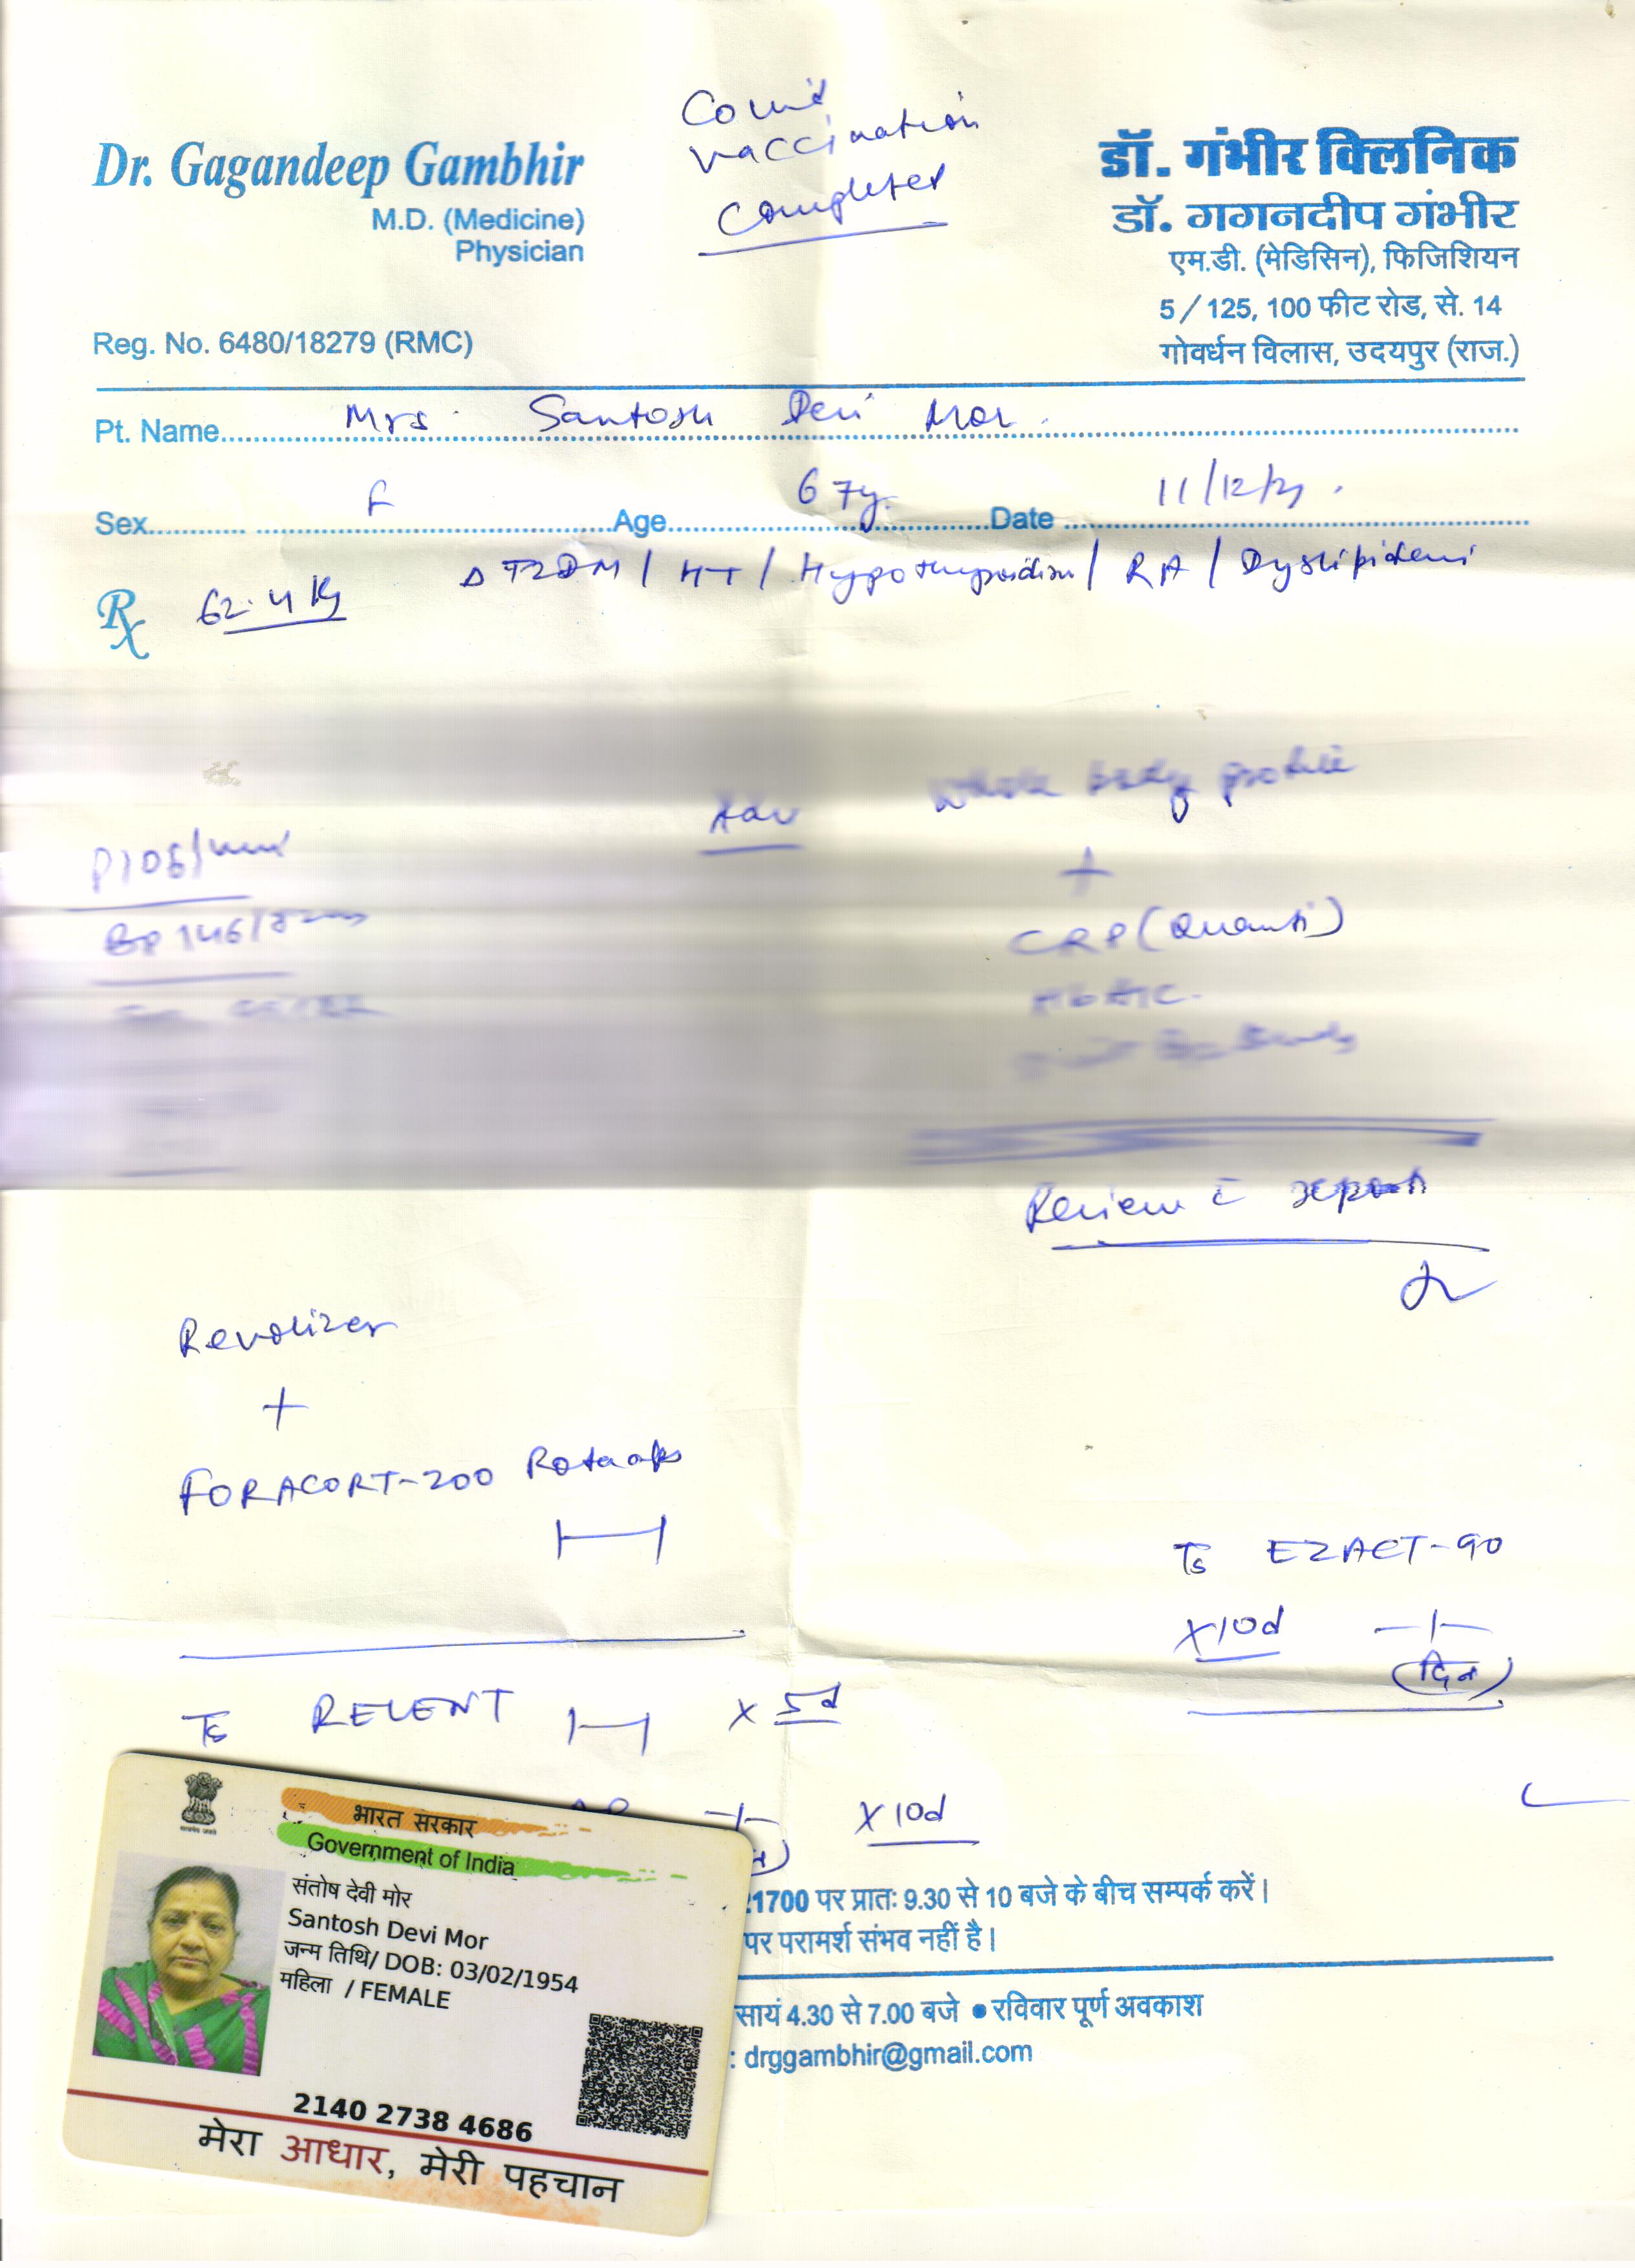 Covid
vaccination
completed
Dr. Gagandeep Gambhir
M.D. (Medicine)
Physician
Reg. No. 6480/18279 (RMC)
डॉ. गंभीर क्लिनिक
डॉ. गगनदीप गंभीर
एम.डी. (मेडिसिन), फिजिशियन
5/125, 100 फीट रोड, से. 14
गोवर्धन विलास, उदयपुर (राज.)
Pt. Name Mrs. Santosh Devi Mor
Sex F Age 67y Date 11/12/21
Rx 62.4 Kg
Δ T2DM / HT / Hypothyroidism / RA / Dyslipidemi
Adv Whole body profile
+
P 106/min
BP 146/
CRP (Quanti)
HbA1c
Review c̄ report
Revolizer
+
FORACORT-200 Rotacaps
Tb EZACT-90
X10d
दिन
Tb RELENT X 5d
X10d
1700 पर प्रातः 9.30 से 10 बजे के बीच सम्पर्क करें।
पर परामर्श संभव नहीं है।
सायं 4.30 से 7.00 बजे ● रविवार पूर्ण अवकाश
: drggambhir@gmail.com
भारत सरकार
Government of India
संतोष देवी मोर
Santosh Devi Mor
जन्म तिथि/ DOB: 03/02/1954
महिला / FEMALE
2140 2738 4686
मेरा आधार, मेरी पहचान